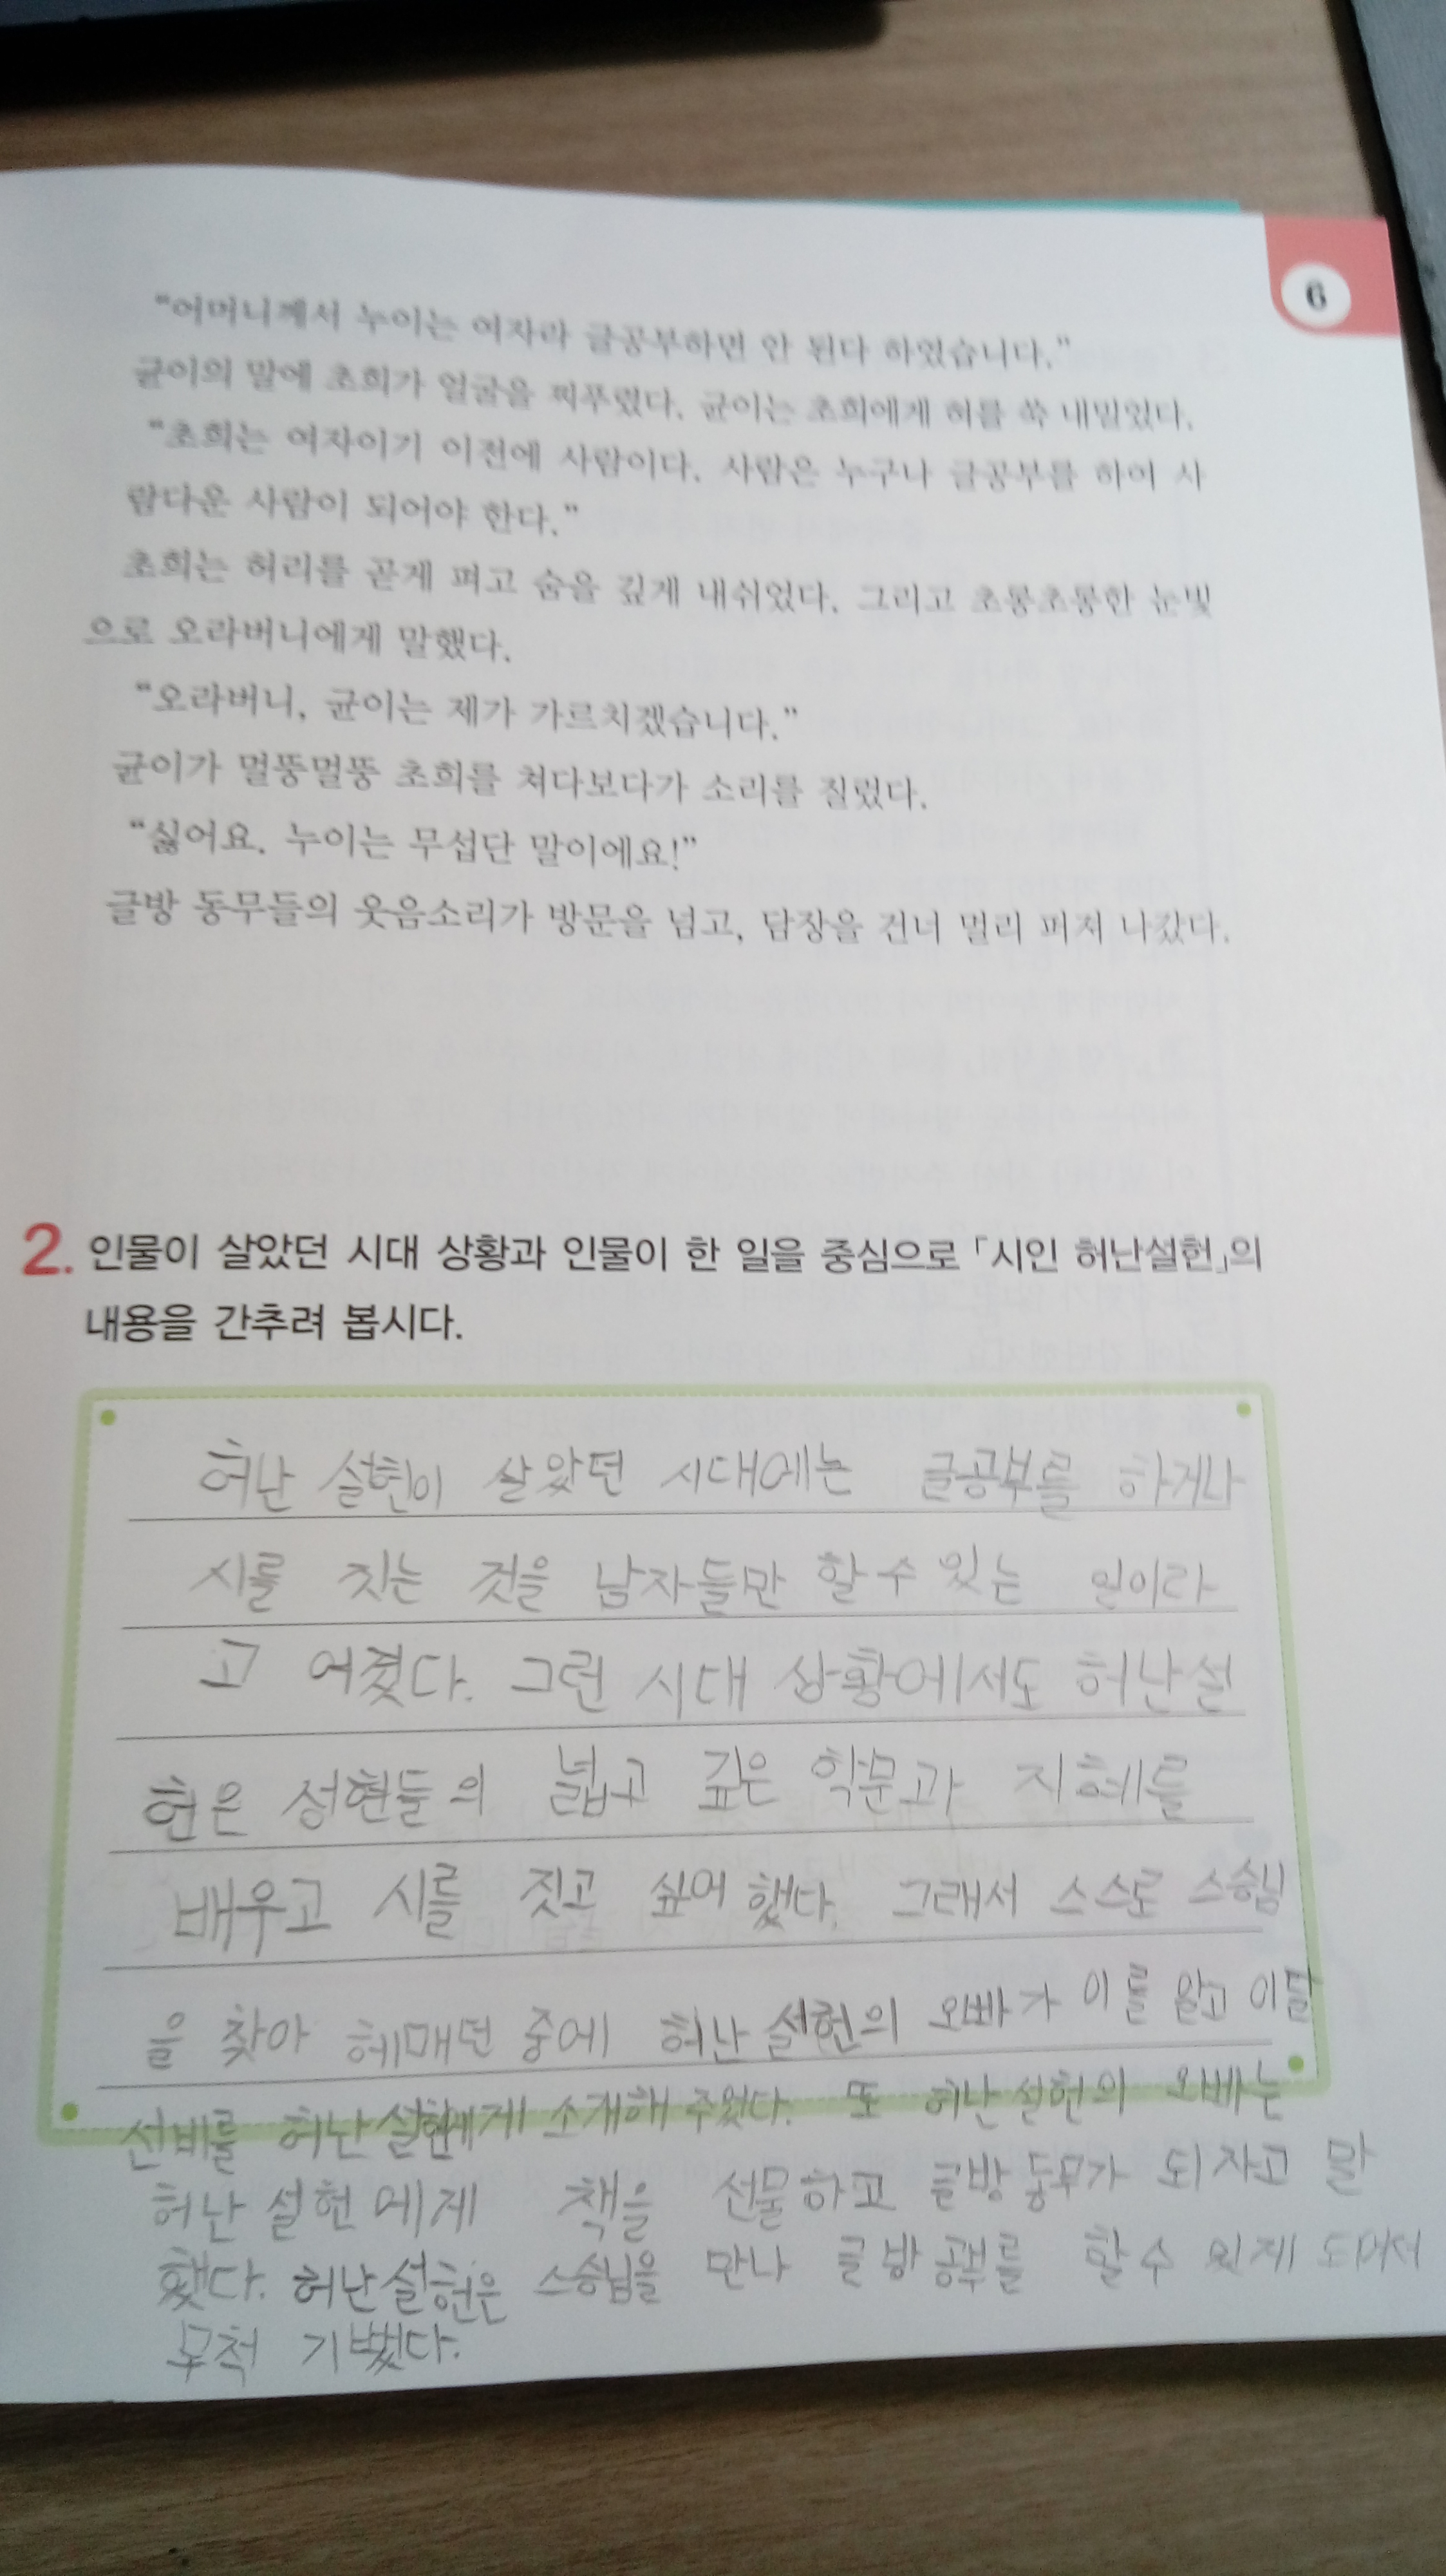 6
“어머니께서 누이는 여자라 글공부하면 안 된다 하였습니다.”
균이의 말에 초희가 얼굴을 찌푸렸다. 균이는 초희에게 혀를 쏙 내밀었다.
“초희는 여자이기 이전에 사람이다. 사람은 누구나 글공부를 하여 사
람다운 사람이 되어야 한다.”
초희는 허리를 곧게 펴고 숨을 깊게 내쉬었다. 그리고 초롱초롱한 눈빛
으로 오라버니에게 말했다.
“오라버니, 균이는 제가 가르치겠습니다.”
균이가 멀뚱멀뚱 초희를 쳐다보다가 소리를 질렀다.
“싫어요. 누이는 무섭단 말이에요!”
글방 동무들의 웃음소리가 방문을 넘고, 담장을 건너 멀리 퍼져 나갔다.
2. 인물이 살았던 시대 상황과 인물이 한 일을 중심으로 「시인 허난설헌」의
내용을 간추려 봅시다.
허난 설헌이 살았던 시대에는 글공부를 하거나
시를 짓는 것을 남자들만 할수있는 일이라
고 여겼다. 그런 시대 상황에서도 허난설
헌은 성현들의 넓고 깊은 학문과 지혜를
배우고 시를 짓고 싶어했다. 그래서 스스로 스승님
을 찾아 헤매던 중에 허난설헌의 오빠가 이를 알고 이달
선비를 허난설헌에게 소개해 주었다. 또 허난설헌의 오빠는
허난설헌에게 책을 선물하고 글방동무가 되자고 말
했다. 허난설헌은 스승님을 만나 글방공부를 할수 있게 되어서
무척 기뻤다.